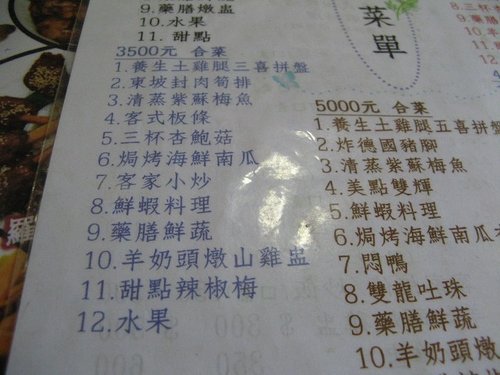 9.藥膳燉盅
10.水果
11. 甜點
3500元 合菜
1.養生土雞腿三喜拼盤
2.東坡封肉筍排
3.清蒸紫蘇梅魚
4.客式板條
5.三杯杏鮑菇
6.焗烤海鮮南瓜
7.客家小炒
8.鮮蝦料理
9.藥膳鮮蔬
10.羊奶頭燉山雞盅
11.甜點辣椒梅
12.水果
菜單
5000元 合菜
1.養生土雞腿五喜拼盤
2.炸德國豬腳
3.清蒸紫蘇梅魚
4.美點雙輝
5.鮮蝦料理
6.焗烤海鮮南瓜
7.悶鴨
8.雙龍吐珠
9.藥膳鮮蔬
10.羊奶頭燉